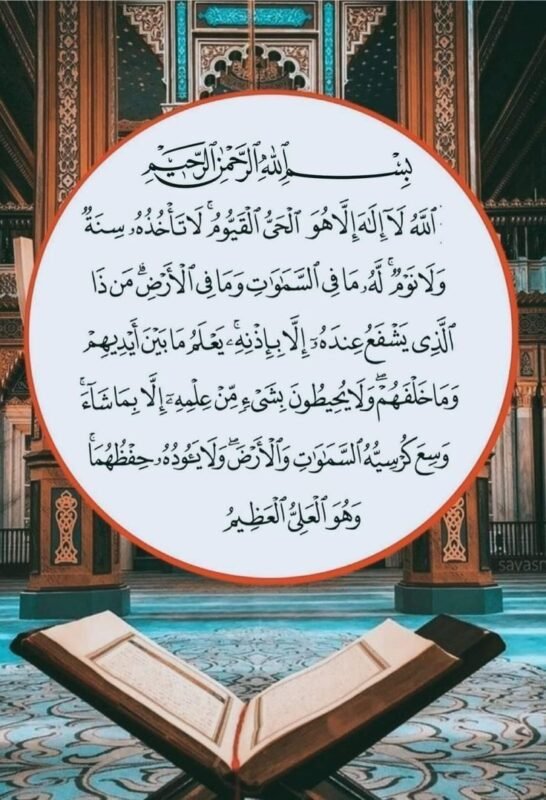 بِسْمِ اللَّهِ الرَّحْمَٰنِ الرَّحِيمِ
اللَّهُ لَا إِلَٰهَ إِلَّا هُوَ الْحَيُّ الْقَيُّومُ ۚ لَا تَأْخُذُهُ سِنَةٌ
وَلَا نَوْمٌ ۚ لَّهُ مَا فِي السَّمَاوَاتِ وَمَا فِي الْأَرْضِ ۗ مَن ذَا
الَّذِي يَشْفَعُ عِندَهُ إِلَّا بِإِذْنِهِ ۚ يَعْلَمُ مَا بَيْنَ أَيْدِيهِمْ
وَمَا خَلْفَهُمْ ۖ وَلَا يُحِيطُونَ بِشَيْءٍ مِّنْ عِلْمِهِ إِلَّا بِمَا شَاءَ ۚ
وَسِعَ كُرْسِيُّهُ السَّمَاوَاتِ وَالْأَرْضَ ۖ وَلَا يَئُودُهُ حِفْظُهُمَا ۚ
وَهُوَ الْعَلِيُّ الْعَظِيمُ